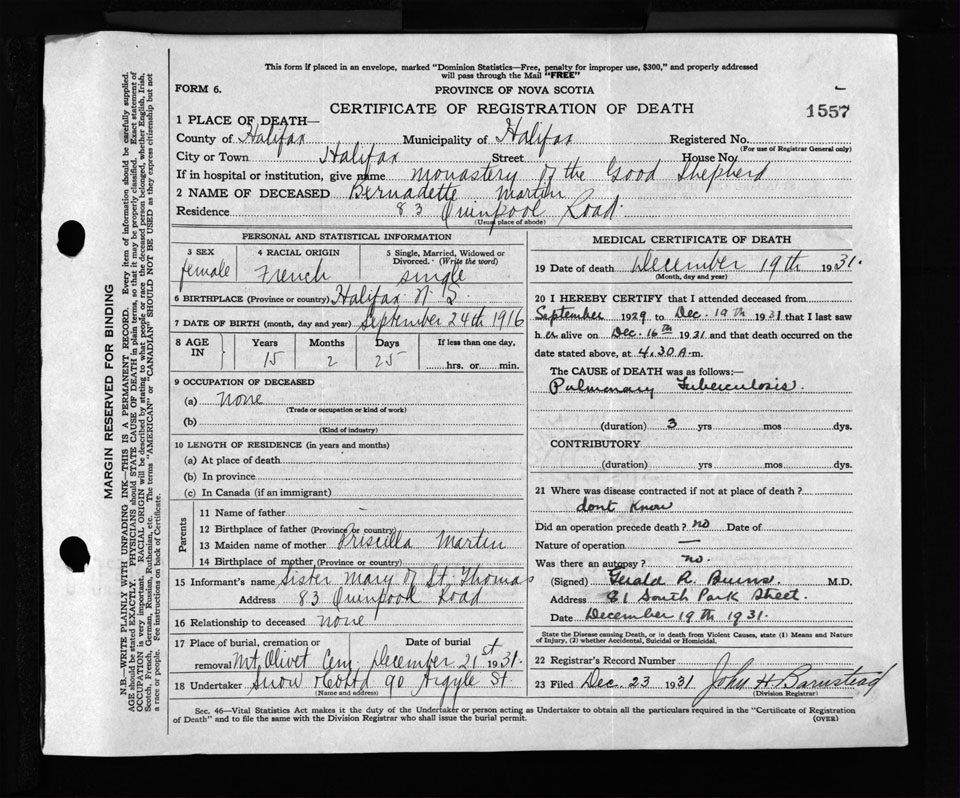 This form if placed in an envelope, marked "Dominion Statistics—Free, penalty for improper use, $300," and properly addressed
will pass through the Mail "FREE"
FORM 6.
PROVINCE OF NOVA SCOTIA
CERTIFICATE OF REGISTRATION OF DEATH
1557
1 PLACE OF DEATH—
County of Halifax Municipality of Halifax Registered No.
(For use of Registrar General only)
City or Town Halifax Street House No
If in hospital or institution, give name Monastery of the Good Shepherd
2 NAME OF DECEASED Bernadette Martin
Residence 83 Quinpool Road
(Usual place of abode)
PERSONAL AND STATISTICAL INFORMATION
3 SEX female
4 RACIAL ORIGIN French
5 Single, Married, Widowed or Divorced. (Write the word) single
6 BIRTHPLACE (Province or country) Halifax N. S.
7 DATE OF BIRTH (month, day and year) September 24th 1916
8 AGE IN Years Months Days If less than one day,
15 2 25 hrs. or min.
9 OCCUPATION OF DECEASED
(a) none
(Trade or occupation or kind of work)
(b)
(Kind of industry)
10 LENGTH OF RESIDENCE (in years and months)
(a) At place of death
(b) In province
(c) In Canada (if an immigrant)
Parents
11 Name of father –
12 Birthplace of father (Province or country)
13 Maiden name of mother Priscilla Martin
14 Birthplace of mother (Province or country)
15 Informant's name Sister Mary of St. Thomas
Address 83 Quinpool Road
16 Relationship to deceased none
17 Place of burial, cremation or Date of burial
removal Mt. Olivet Cem. December 21st 1931.
18 Undertaker Snow & Co Ltd 90 Argyle St.
(Name and address)
MEDICAL CERTIFICATE OF DEATH
19 Date of death December 19th 1931.
(Month, day and year)
20 I HEREBY CERTIFY that I attended deceased from
September 1929 to Dec. 19th 1931 that I last saw
her alive on Dec. 16th 1931 and that death occurred on the
date stated above, at 4.30 A.m.
The CAUSE OF DEATH was as follows:—
Pulmonary Tuberculosis.
(duration) 3 yrs mos dys.
CONTRIBUTORY
(duration) yrs. mos. dys.
21 Where was disease contracted if not at place of death?
dont Know
Did an operation precede death? no Date of
Nature of operation —
Was there an autopsy? no.
(Signed) Gerald R. Burns. M.D.
Address 81 South Park Street.
Date December 19th 1931.
State the Disease causing Death, or in death from Violent Causes, state (1) Means and Nature
of Injury, (?) whether Accidental, Suicidal or Homicidal.
22 Registrar's Record Number
23 Filed Dec 23 1931 John H Barnstead
(Division Registrar)
Sec. 46—Vital Statistics Act makes it the duty of the Undertaker or person acting as Undertaker to obtain all the particulars required in the "Certificate of Registration
of Death" and to file the same with the Division Registrar who shall issue the burial permit.
(OVER)
MARGIN RESERVED FOR BINDING
N.B.—WRITE PLAINLY WITH UNFADING INK—THIS IS A PERMANENT RECORD. Every item of information should be carefully supplied.
AGE should be stated EXACTLY. PHYSICIANS should STATE CAUSE OF DEATH in plain terms, so that it may be properly classified. Exact statement of
OCCUPATION is very important. RACIAL ORIGIN will be described by stating to what people or race the deceased person belonged, whether English, Irish,
Scotch, French, German, Russian, Ruthenian, etc. The terms "AMERICAN" or "CANADIAN" SHOULD NOT BE USED as they express citizenship but not
a race or people. See instructions on back of Certificate.